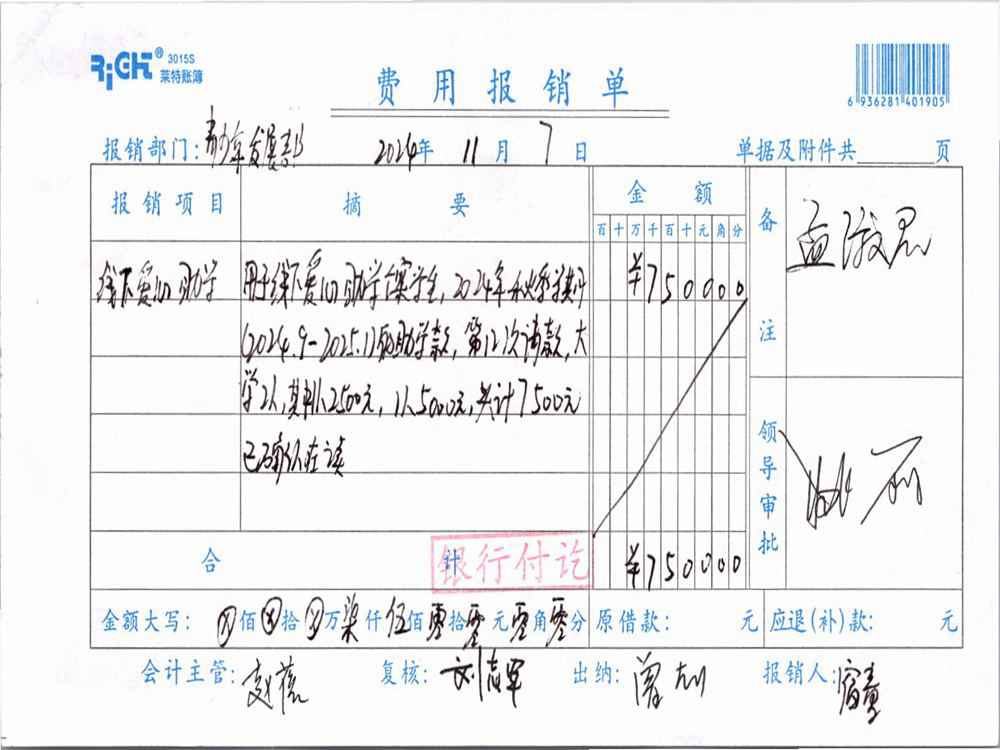 RiGHT® 3015S
莱特账簿
费用报销单
6 936281 401905
报销部门：青少年发展部 2024年 11月 7日 单据及附件共 页
报销项目 摘要 金额 备注
百十万千百十元角分
线下爱心助学 用于线下爱心助学个案学生，2024年秋季学期
(2024.9-2025.1)的助学款，第12次请款，大
学2人，其中1人2500元，1人5000元，共计7500元
已确认在读
¥750000
领导审批
合计 ¥750000
银行付讫
金额大写：佰 拾 万柒仟伍佰零拾零元零角零分 原借款： 元 应退(补)款： 元
会计主管： 复核：刘志军 出纳： 报销人：